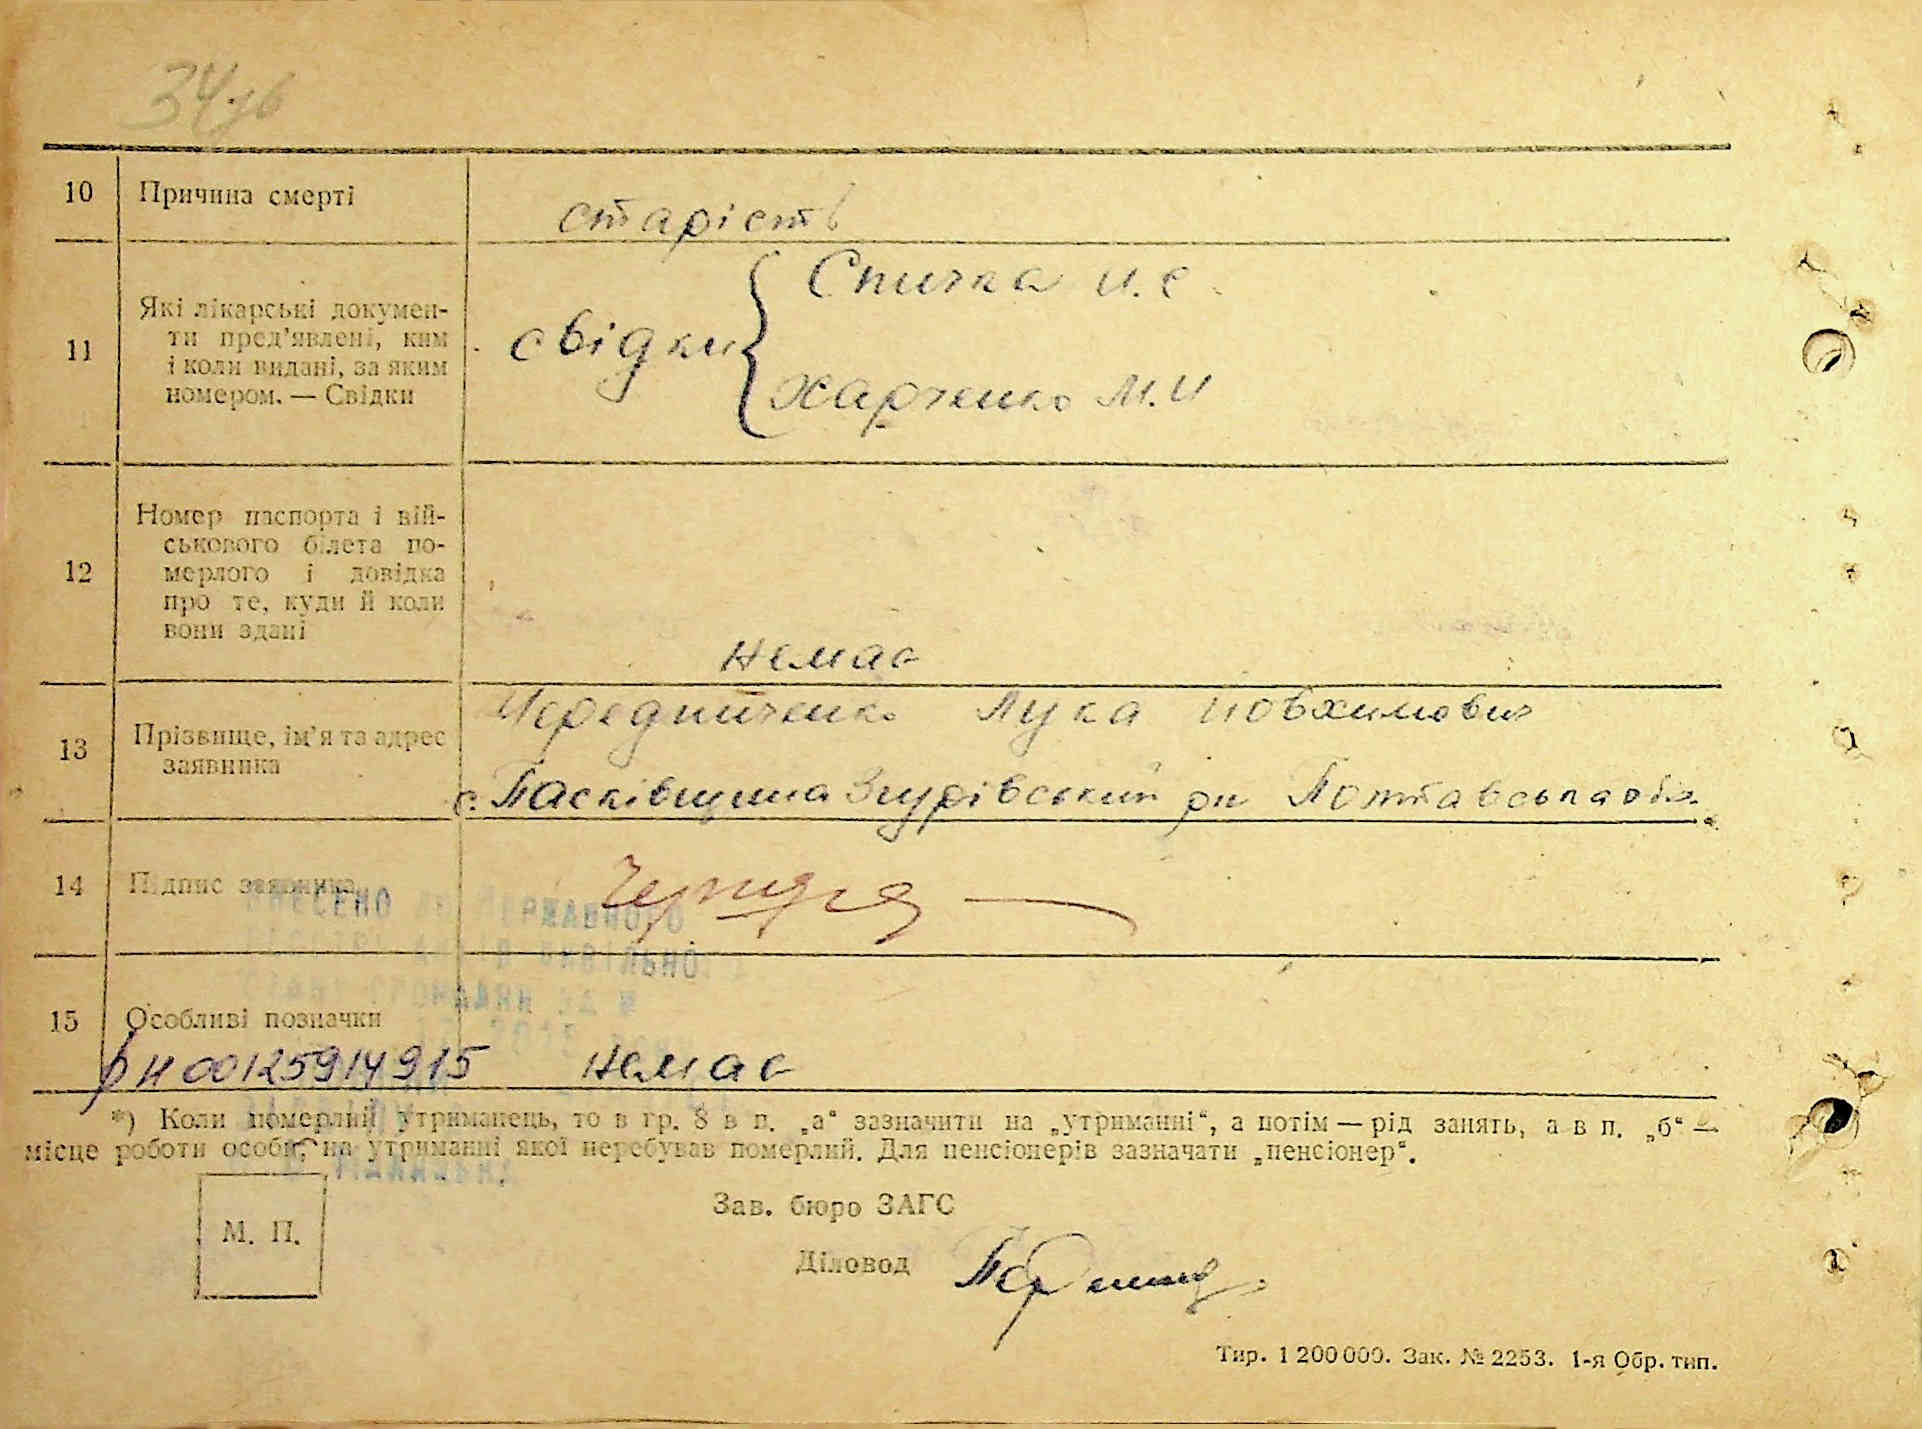 34 зв
10 Причина смерті старість
11 Які лікарські докумен-
ти пред'явлені, ким
і коли видані, за яким
номером. — Свідки
свідки { Спичка И. С.
Харченко М. И
12 Номер паспорта і вій-
ськового білета по-
мерлого і довідка
про те, куди й коли
вони здані
немає
13 Прізвище, ім'я та адрес
заявника
Чередниченко Лука Иовхимович
с. Пасківщина Згурівський рн Полтавська обл.
14 Підпис заявника
ВНЕСЕНО ДО ДЕРЖАВНОГО
15 Особливі позначки
РН 00125914915 немає
*) Коли померлий утриманець, то в гр. 8 в п. „а“ зазначити на „утриманні“, а потім — рід занять, а в п. „б“ —
місце роботи особи, на утриманні якої перебував померлий. Для пенсіонерів зазначати „пенсіонер“.
М. П.
Зав. бюро ЗАГС
Діловод
Тир. 1 200 000. Зак. № 2253. 1-я Обр. тип.